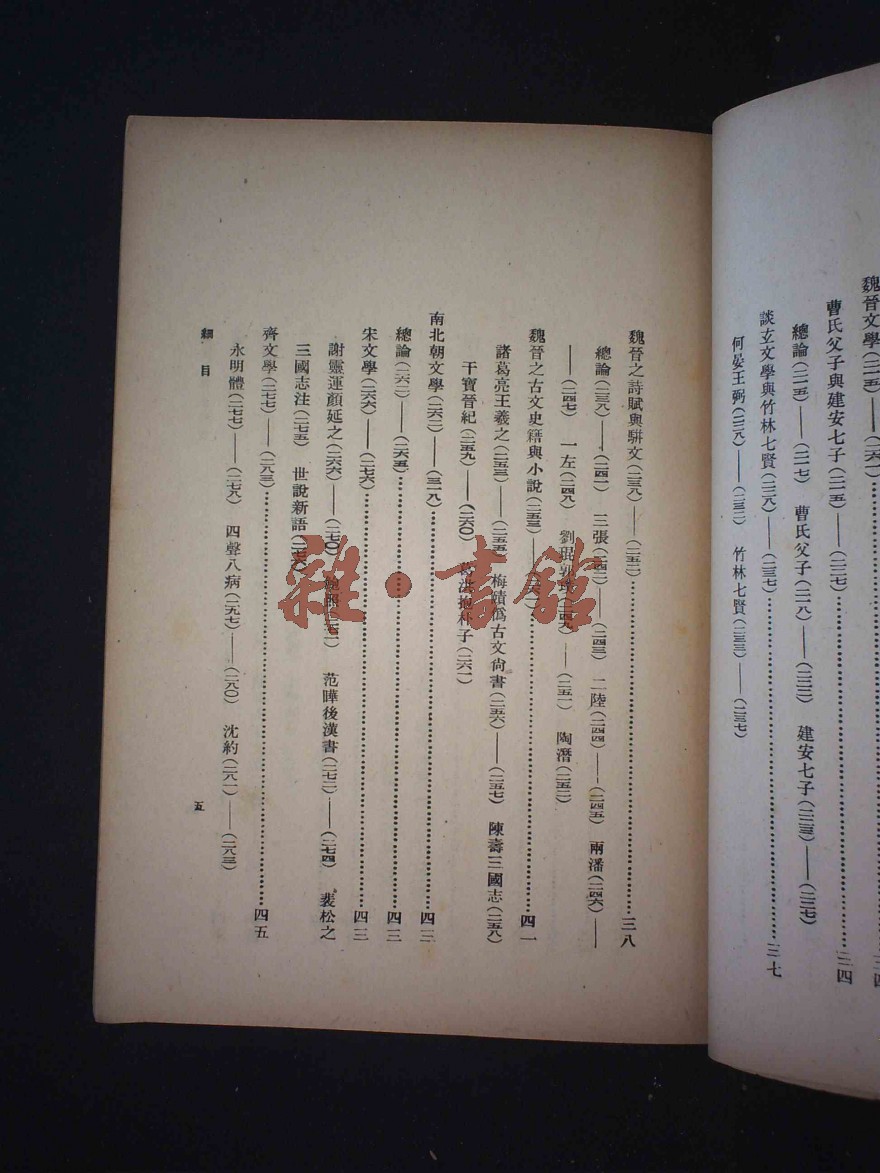 魏晉文學(二一五)
曹氏父子與建安七子(二一五)——(二二七)……三四
總論(二一五)——(二一七) 曹氏父子(二一八)——(二二二) 建安七子(二二三)——(二二七)
談玄文學與竹林七賢(二二八)——(二三七)……三七
何晏王弼(二二八)——(二三二) 竹林七賢(二三三)——(二三七)
魏晉之詩賦與駢文(二三八)——(二五二)……三八
總論(二三八)——(二四一) 三張(二四二)——(二四三) 二陸(二四四)——(二四五) 兩潘(二四六)——
——(二四七) 一左(二四八) 劉琨郭璞(二四九)——(二五一) 陶潛(二五二)
魏晉之古文史籍與小說(二五三)——……四一
諸葛亮王羲之(二五三)——(二五五) 梅賾僞古文尚書(二五六)——(二五七) 陳壽三國志(二五八)
干寶晉紀(二五九)——(二六〇) 葛洪抱朴子(二六一)
南北朝文學(二六二)——(三一八)……四三
總論(二六二)——(二六五)……四三
宋文學(二六六)——(二七六)……四三
謝靈運顏延之(二六六)——(二七〇) 鮑照 范曄後漢書(二七二)——(二七四) 裴松之
三國志注(二七五) 世說新語(二七六)
齊文學(二七七)——(二八三)……四五
永明體(二七七)——(二七八) 四聲八病(二九七)——(二八〇) 沈約(二八一)——(二八三)
細目
五
雜·書館